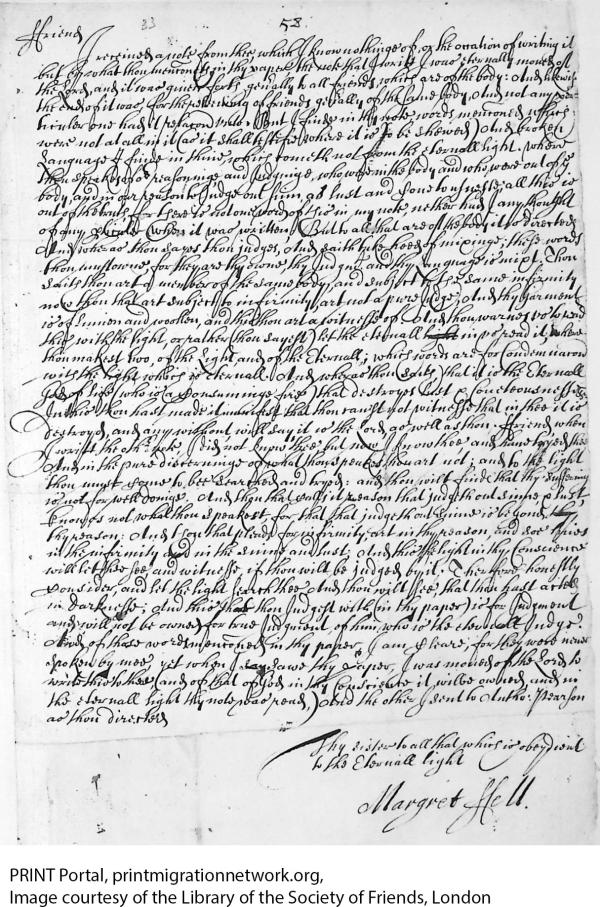 33 58
ffriend
I received a note from thee which I know nothinge of, or the occation of writing it
but by what thou mencons in thy paper the note that I writt I was eternally moved of
the Lord, and it was given forth generally to all friends which are of the body: And likewise
the end of it was for the of friends generally of the same body, And not any per=
ticuler one had it relacon unto. But I finde in thy note words mencioned which
were not at all in it (as it shall testifie where it is to be shewed) And broken
Language I finde in thine, which cometh not from the eternall light. Where
thou speakes of reasoninge and Judginge, who were in the body and who were out of ye
body, and in our reason to Judge out sinn, as lust and soe to unite all this is
out of the truth, for there is not one word of this in my note, nether had I any thought
of any perticuler (when it was written) But to all that are of the body it is directed
And whereas thou sayes thou judges, And saith take heed of mixinge; these words
thou must owne, for they are thy owne thy Judgmt and thy Language is mixt. Thou
saith thou art a member of the same body, and subject to the same infirmity
now thou that art subject to infirmity, art not a pure Judge, And thy garment
is of linnen and woollen, and this thou art a witnesse of. And thou warnes us to read
this with the light, or rather (thou sayest) let the eternall in us read it, where
thou makest two, of the light, and of the Eternall; which words are for Condemnacon
with the light which is eternall. And whereas thou saith that it is the Eternall
God of life who is a Consuminge fire that destroyes lust & Coveteousnesse &c
In this thou hast made it manifest that thou canst not witnesse that in thee it is
destroyed, and any without will say it is the Lord, as well as thou: ffriend when
I writt the other note, I did not know thee, but now I know thee and have tryed thee
And in the pure discerninge of what thou speakes thou art not; and to the light
thou must Come to, bee searched and tryed: and thou will finde that thy suffering
is not for well doinge. And thou that calls it reason that judgeth out sinne & lust,
knowes not what thou speakest, for that that judgeth out sinne is beyond
thy reason: And thou that pleads for infirmity, art in thy reason, and soe
in the infirmity and in the sinne and lust: And this the light in thy Conscience
will let thee see and witnesse, if thou will be judged by it. Therefore honestly
Consider, and let the light search thee And thou will see that thou hast acted
in darknesse; And this that thou Judgest with in thy paper is for Judgment
and will not be owned for true Judgment of him who is the eternall Judge.
And of those words mencioned in thy paper, I am Cleare; for they were never
spoken by mee, yet when I sawe thy paper, I was moved of the Lord to
write this to thee (and of that of God in thy Conscience it wilbe owned, and in
the eternall light thy note was read,) And the other I sent to Antho: Pearson
as thou directed
Thy sister to all that which is obeydient
to the Eternall light
Margret ffell.
PRINT Portal, printmigrationnetwork.org,
Image courtesy of the Library of the Society of Friends, London